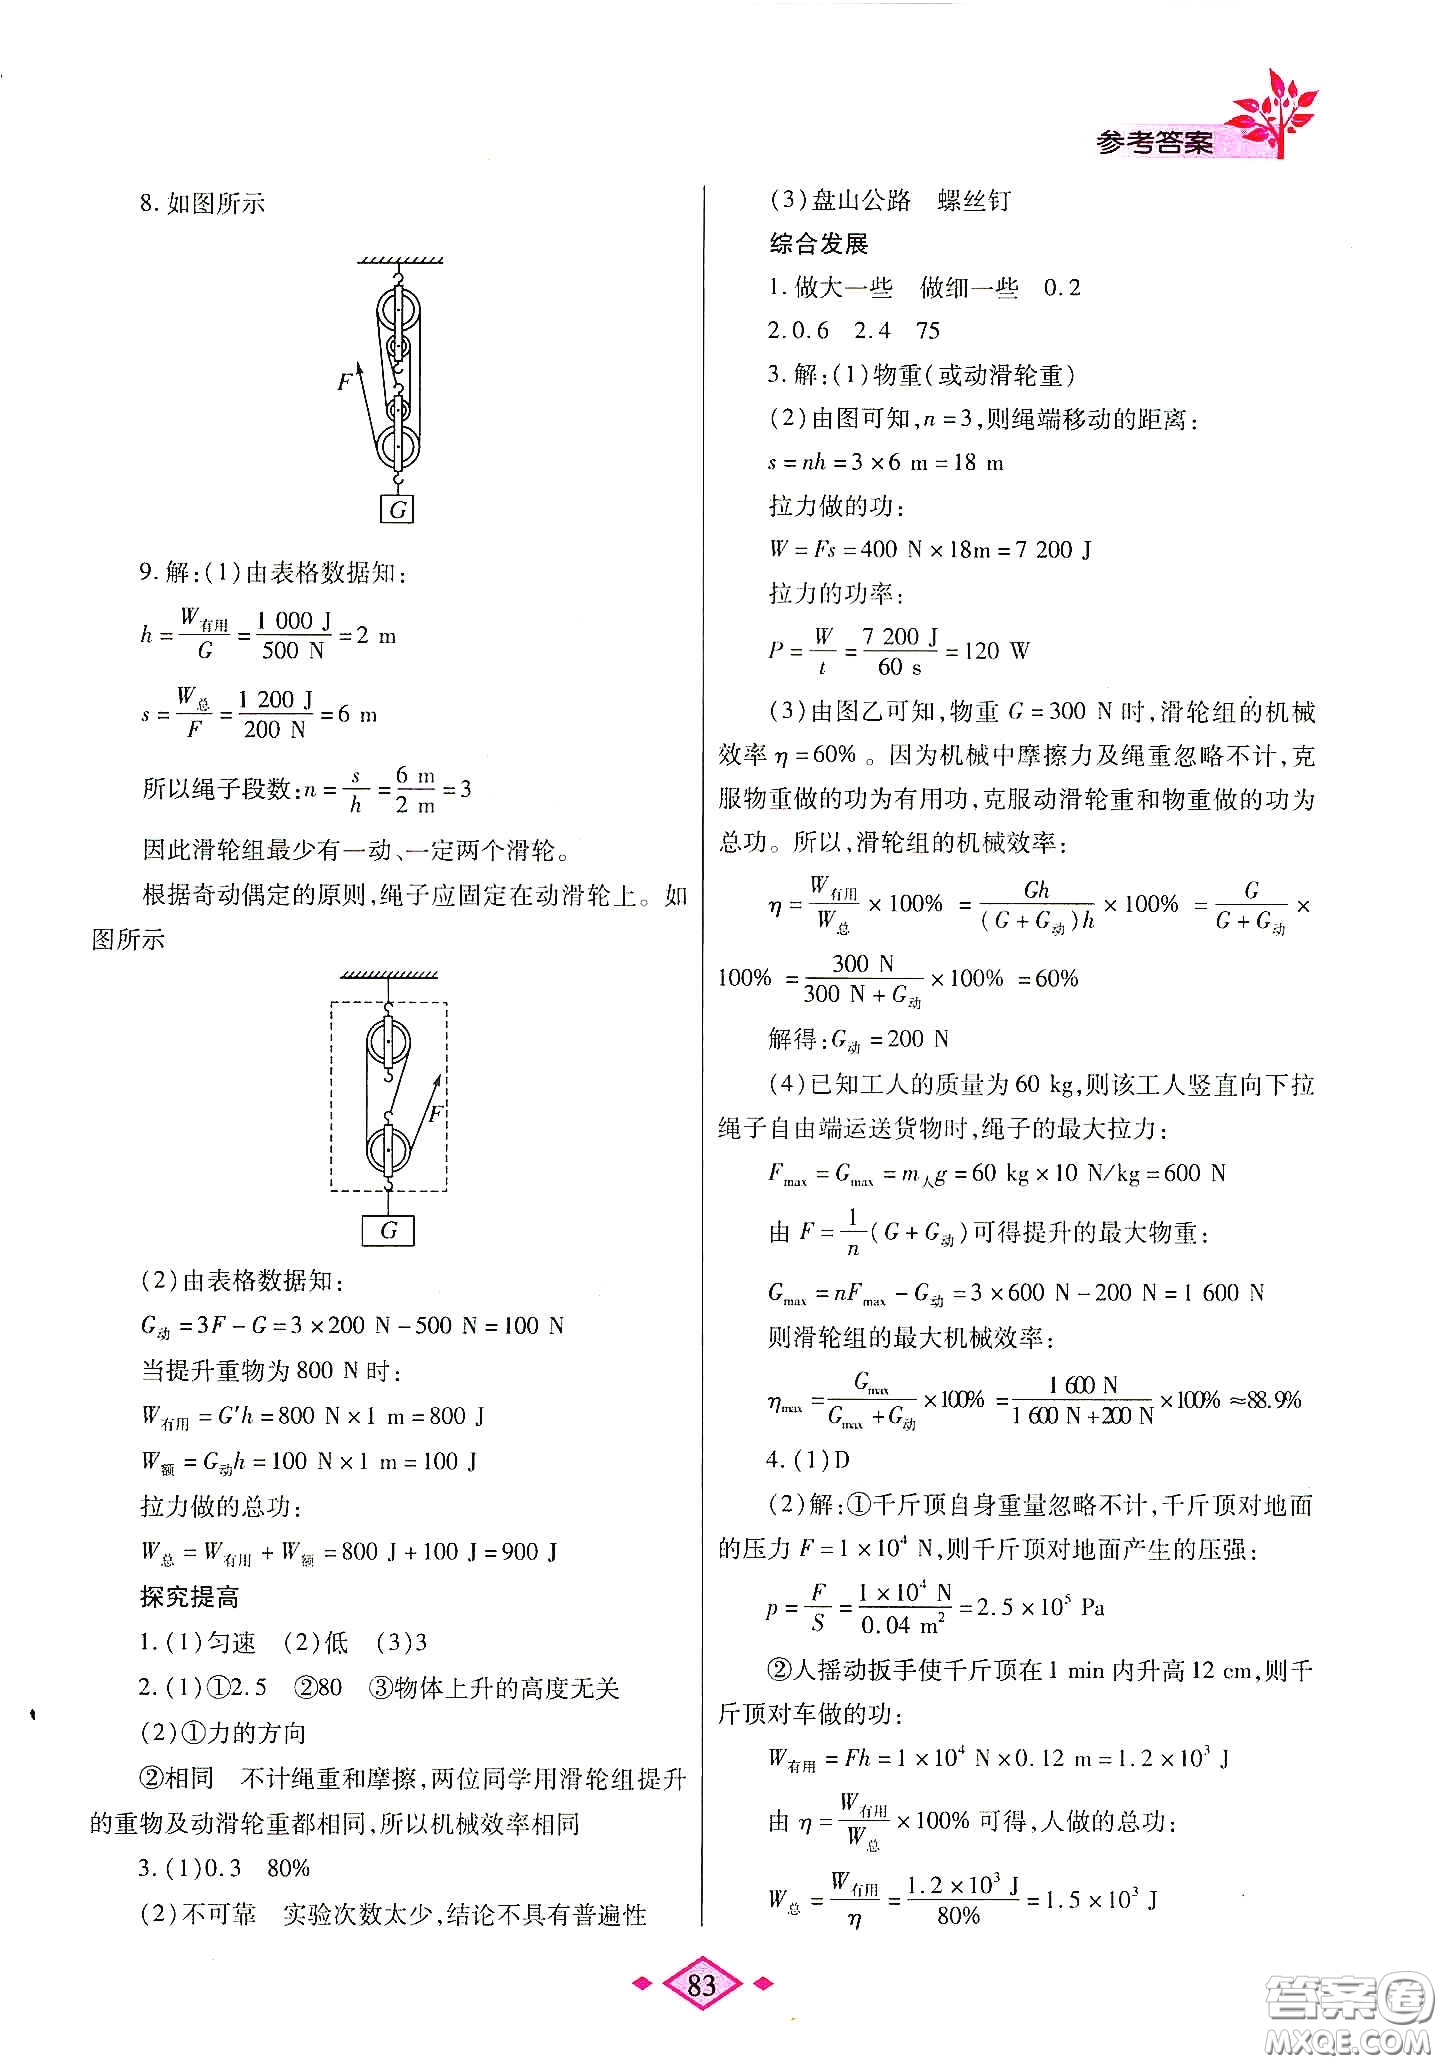 参考答案
8.如图所示
F
G
9.解:(1)由表格数据知:
h=W有用/G=1 000 J/500 N=2 m
s=W总/F=1 200 J/200 N=6 m
所以绳子段数:n=s/h=6 m/2 m=3
因此滑轮组最少有一动、一定两个滑轮。
根据奇动偶定的原则,绳子应固定在动滑轮上。如
图所示
F
G
(2)由表格数据知:
G动=3F-G=3×200 N-500 N=100 N
当提升重物为800 N时:
W有用=G'h=800 N×1 m=800 J
W额=G动h=100 N×1 m=100 J
拉力做的总功:
W总=W有用+W额=800 J+100 J=900 J
探究提高
1.(1)匀速 (2)低 (3)3
2.(1)①2.5 ②80 ③物体上升的高度无关
(2)①力的方向
②相同 不计绳重和摩擦,两位同学用滑轮组提升
的重物及动滑轮重都相同,所以机械效率相同
3.(1)0.3 80%
(2)不可靠 实验次数太少,结论不具有普遍性
(3)盘山公路 螺丝钉
综合发展
1.做大一些 做细一些 0.2
2.0.6 2.4 75
3.解:(1)物重(或动滑轮重)
(2)由图可知,n=3,则绳端移动的距离:
s=nh=3×6 m=18 m
拉力做的功:
W=Fs=400 N×18m=7 200 J
拉力的功率:
P=W/t=7 200 J/60 s=120 W
(3)由图乙可知,物重G=300 N时,滑轮组的机械
效率η=60%。因为机械中摩擦力及绳重忽略不计,克
服物重做的功为有用功,克服动滑轮重和物重做的功为
总功。所以,滑轮组的机械效率:
η=W有用/W总×100% =Gh/(G+G动)h×100% =G/G+G动×
100% =300 N/300 N+G动×100% =60%
解得:G动=200 N
(4)已知工人的质量为60 kg,则该工人竖直向下拉
绳子自由端运送货物时,绳子的最大拉力:
Fmax=Gmax=m人g=60 kg×10 N/kg=600 N
由F=1/n(G+G动)可得提升的最大物重:
Gmax=nFmax-G动=3×600 N-200 N=1 600 N
则滑轮组的最大机械效率:
ηmax=Gmax/Gmax+G动×100%=1 600 N/1 600 N+200 N×100%≈88.9%
4.(1)D
(2)解:①千斤顶自身重量忽略不计,千斤顶对地面
的压力F=1×10⁴ N,则千斤顶对地面产生的压强:
p=F/S=1×10⁴ N/0.04 m²=2.5×10⁵ Pa
②人摇动扳手使千斤顶在1 min内升高12 cm,则千
斤顶对车做的功:
W有用=Fh=1×10⁴ N×0.12 m=1.2×10³ J
由η=W有用/W总×100%可得,人做的总功:
W总=W有用/η=1.2×10³ J/80%=1.5×10³ J
83
答案圈
MXQE.COM